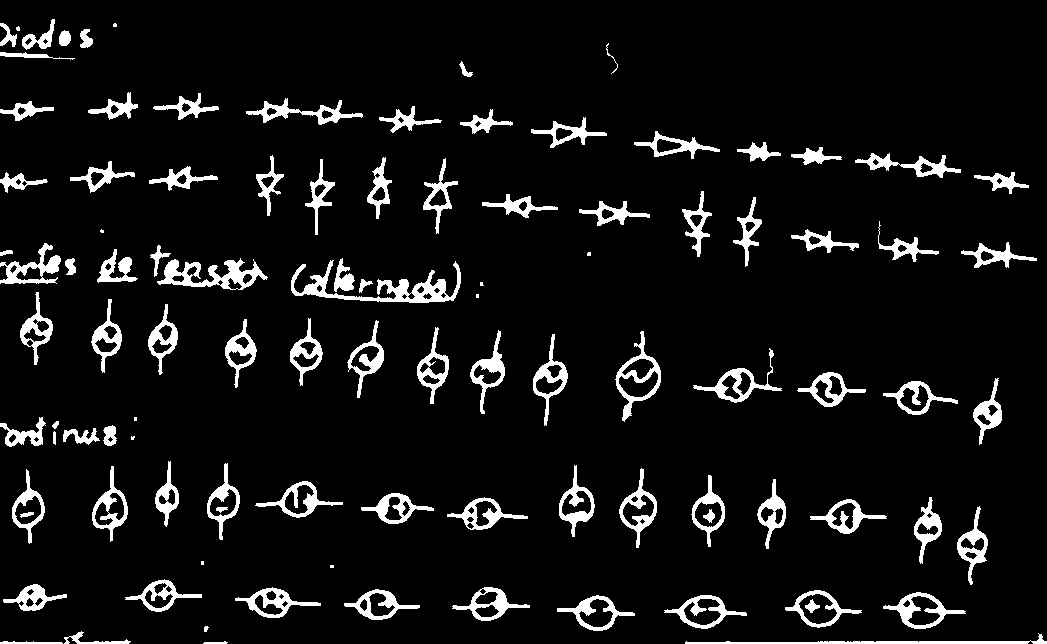 Diodos
Fontes de tensão (alternada):
Contínua: